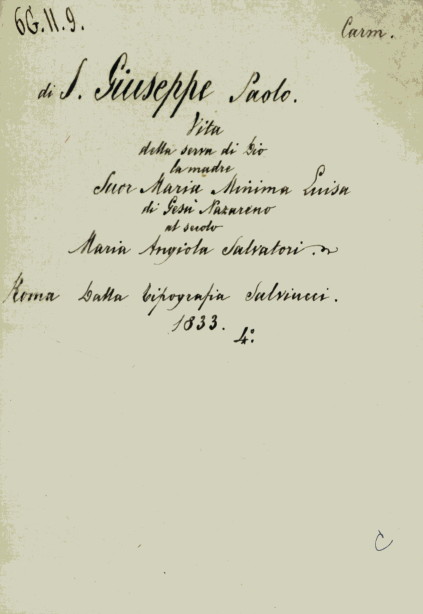 6G.11.9.
Carm.
di S. Giuseppe Paolo.
Vita
della serva di Dio
la madre
Suor Maria Minima Luisa
di Gesù Nazareno
al secolo
Maria Angiola Salvatori.
Roma Dalla tipografia Salviucci.
1833.
4°.
C